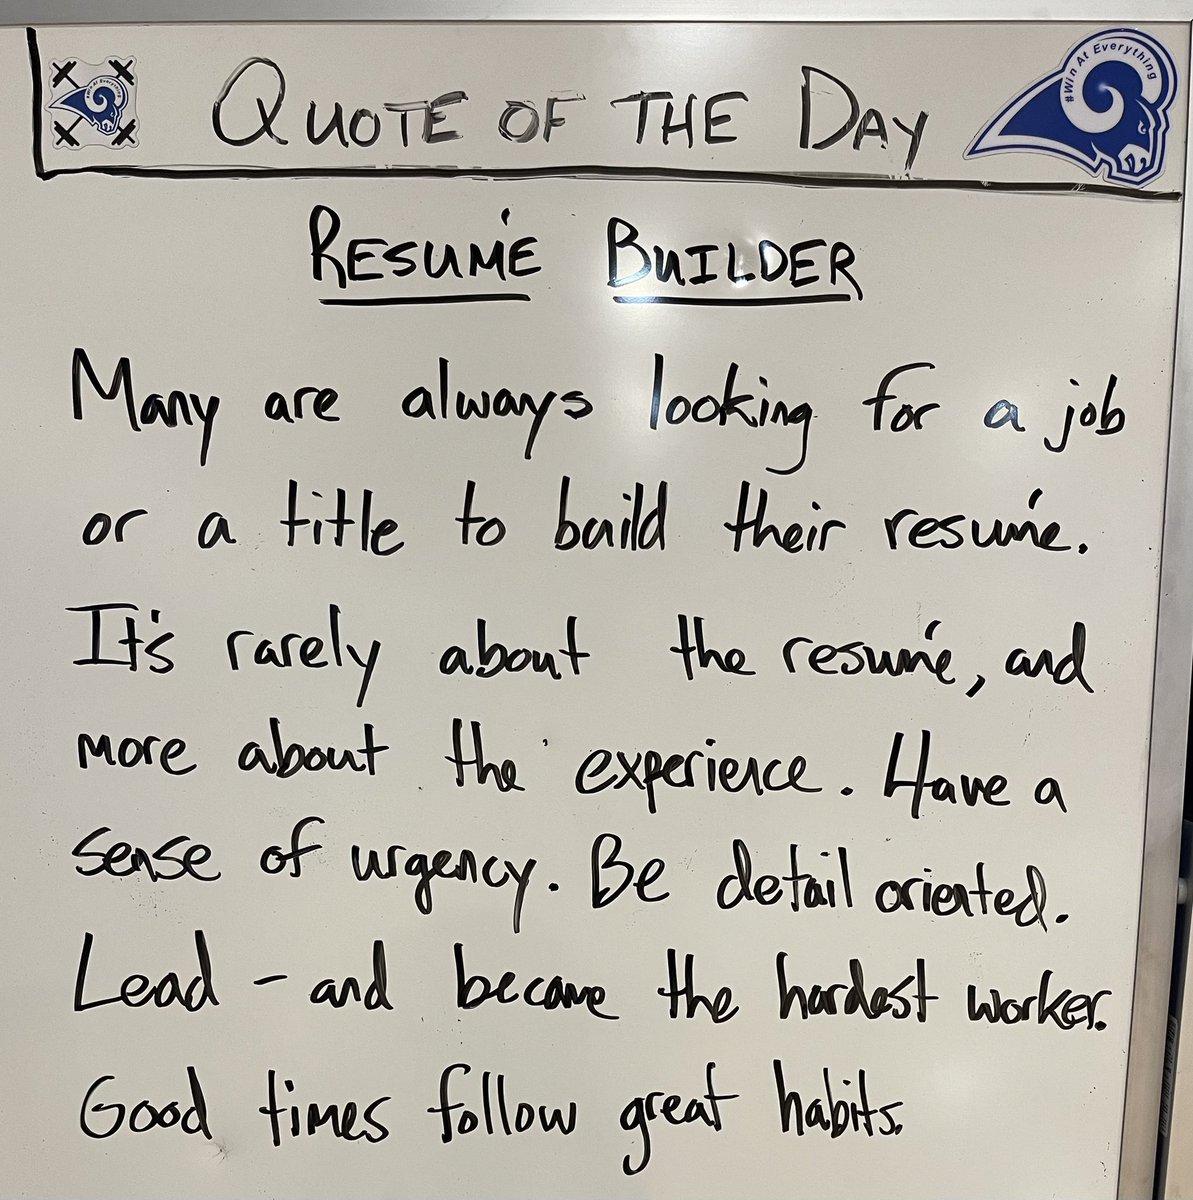 QUOTE OF THE DAY
#Win At Everything
RESUMÉ BUILDER
Many are always looking for a job
or a title to build their resumé.
It's rarely about the resumé, and
more about the experience. Have a
sense of urgency. Be detail oriented.
Lead - and become the hardest worker.
Good times follow great habits.